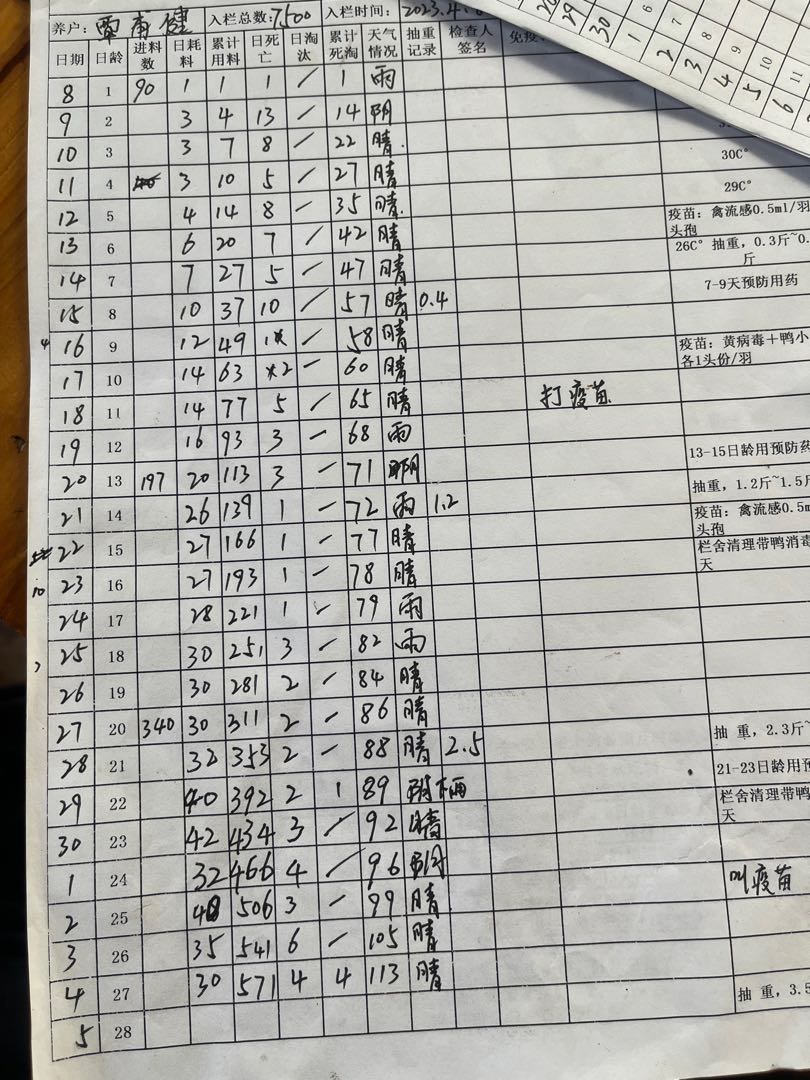 养户: 入栏总数: 7500 入栏时间: 2023.4.
日期 日龄 进料数 日耗料 累计用料 日死亡 日淘汰 累计死淘 天气情况 抽重记录 检查人签名 免疫
8 1 90 1 1 1 / 1 雨
9 2 3 4 13 / 14 阴
10 3 3 7 8 / 22 晴 30C°
11 4 3 10 5 / 27 晴 29C°
12 5 4 14 8 / 35 晴 疫苗：禽流感0.5ml/羽 头孢
13 6 6 20 7 / 42 晴 26C° 抽重，0.3斤~0. 斤
14 7 7 27 5 / 47 晴 7-9天预防用药
15 8 10 37 10 / 57 晴 0.4
16 9 12 49 1 / 58 晴 疫苗：黄病毒＋鸭小 各1头份/羽
17 10 14 63 2 - 60 晴
18 11 14 77 5 / 65 晴 打疫苗
19 12 16 93 3 - 68 雨 13-15日龄用预防药
20 13 197 20 113 3 - 71 阴 抽重，1.2斤~1.5斤
21 14 26 139 1 - 72 雨 1.2 疫苗：禽流感0.5m 头孢
22 15 27 166 1 - 77 晴 栏舍清理带鸭消毒 天
23 16 27 193 1 - 78 晴
24 17 28 221 1 - 79 雨
25 18 30 251 3 - 82 雨
26 19 30 281 2 - 84 晴
27 20 340 30 311 2 - 86 晴 抽 重，2.3斤~
28 21 32 353 2 - 88 晴 2.5 21-23日龄用预
29 22 40 392 2 1 89 栏舍清理带鸭 天
30 23 42 434 3 / 92 晴
1 24 32 466 4 / 96 阴 叫疫苗
2 25 40 506 3 / 99 晴
3 26 35 541 6 / 105 晴
4 27 30 571 4 4 113 晴 抽 重，3.5
5 28